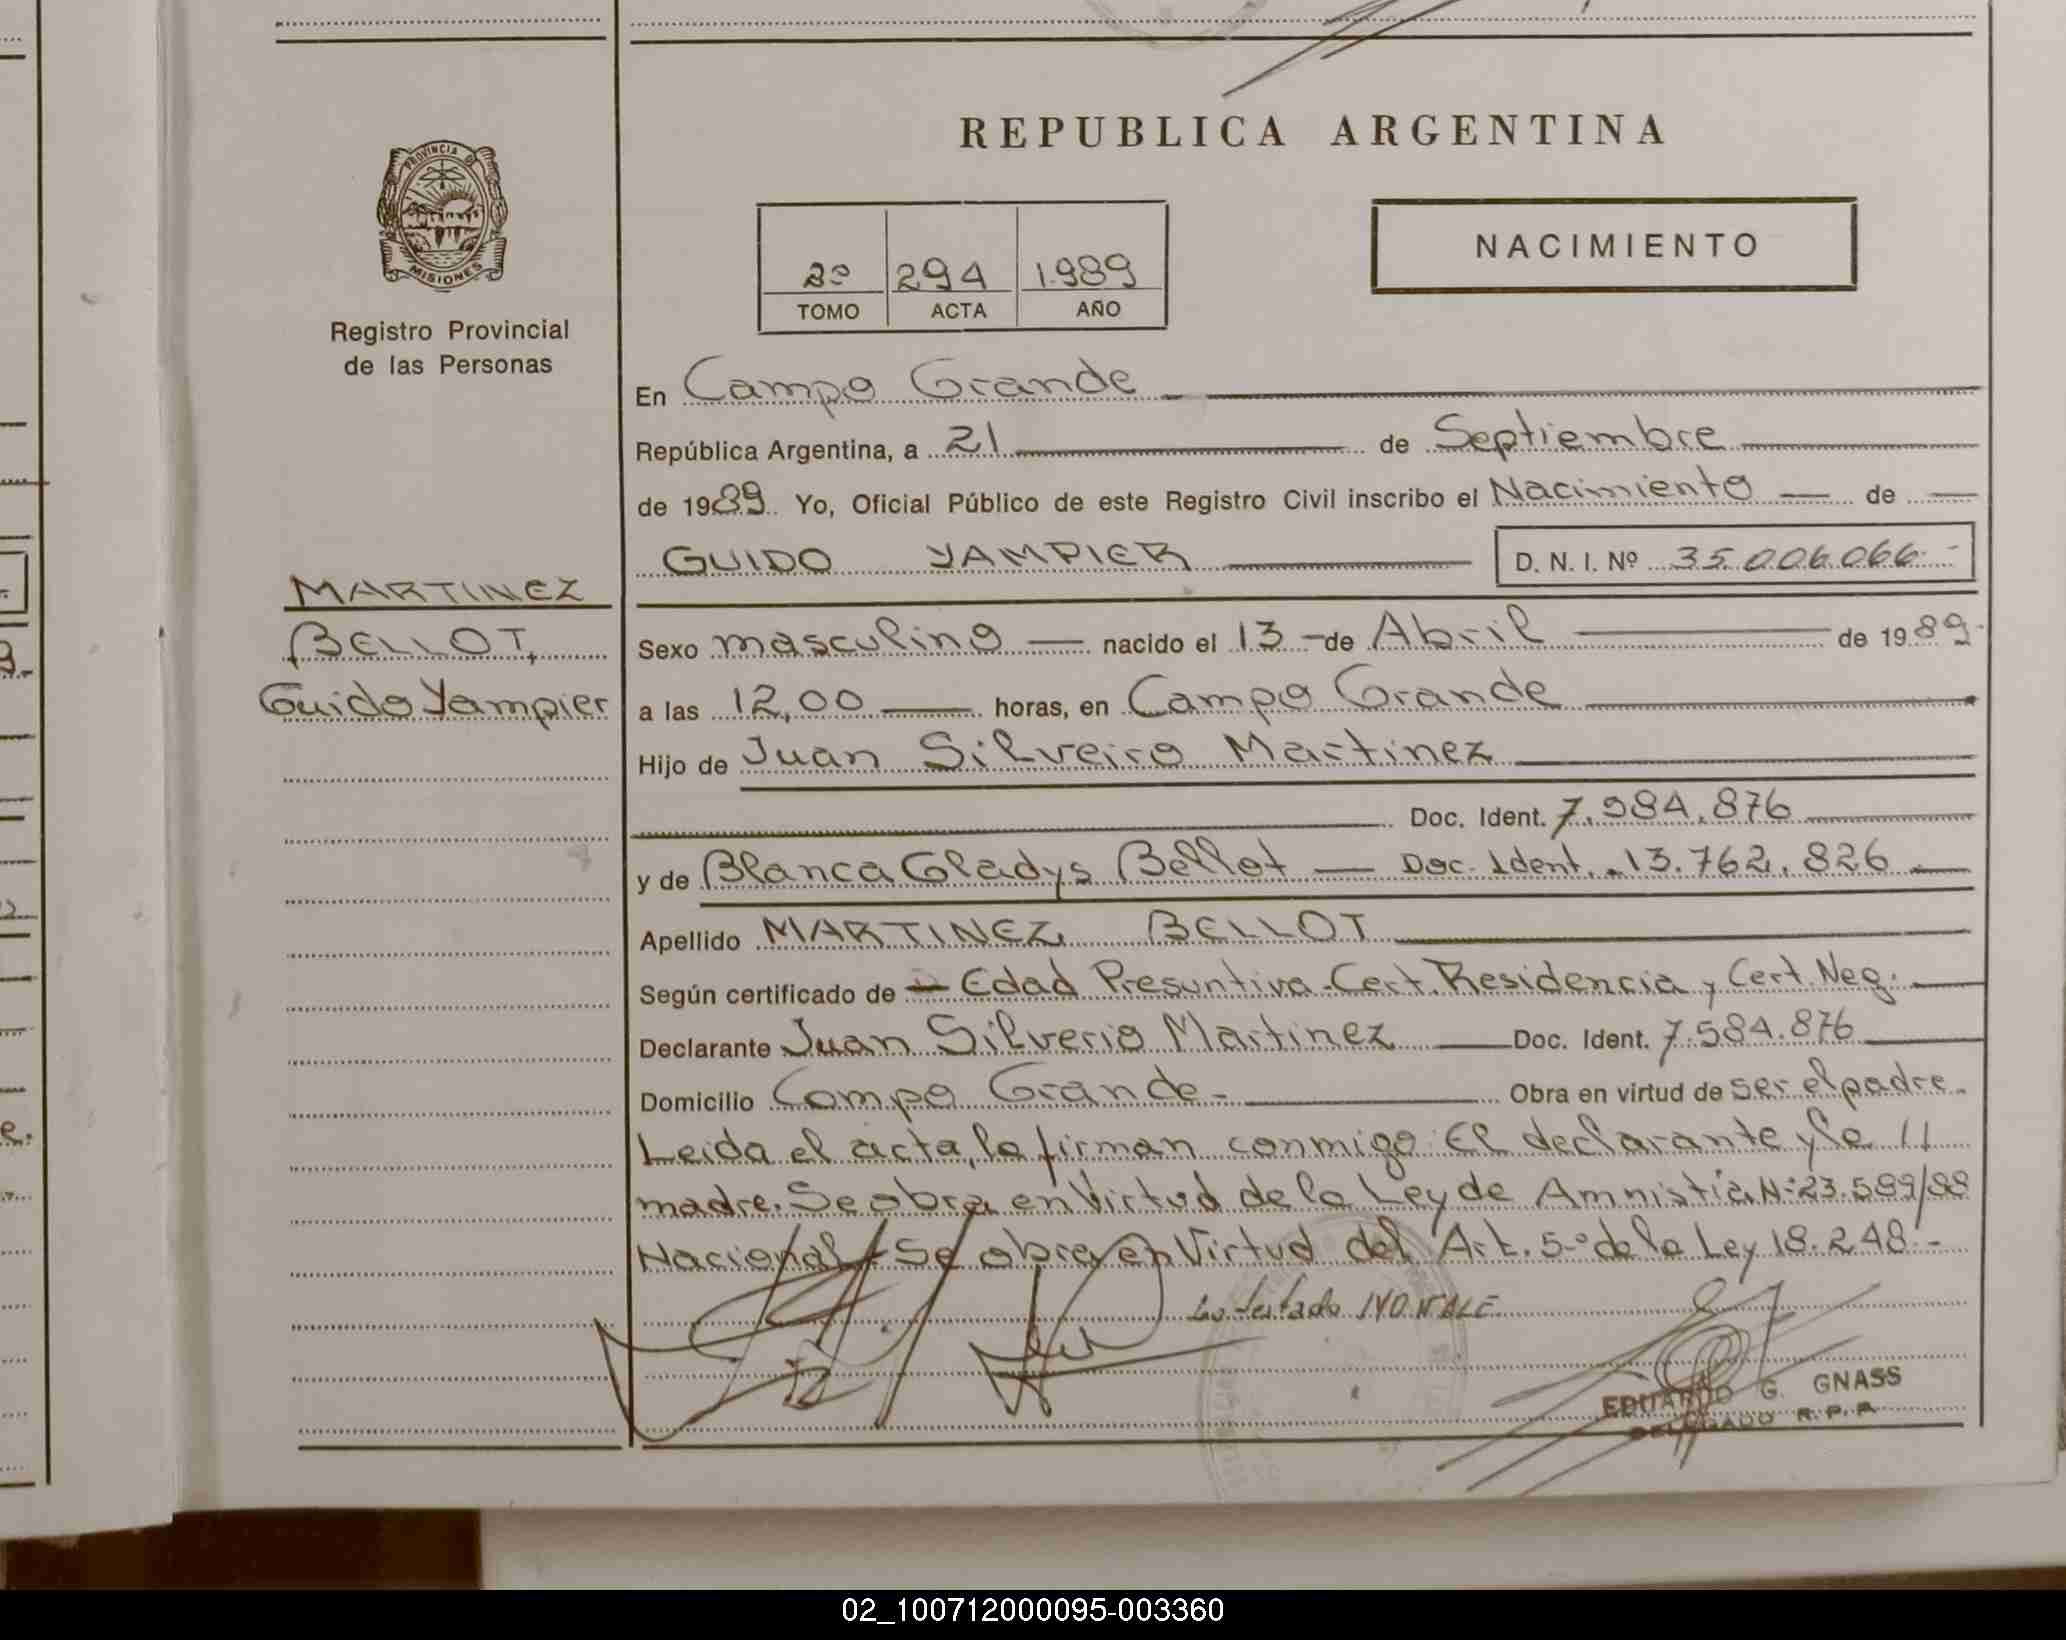 REPUBLICA ARGENTINA
PROVINCIA DE
MISIONES
Registro Provincial
de las Personas
2º 294 1.989
TOMO ACTA AÑO
NACIMIENTO
En Campo Grande
República Argentina, a 21 de Septiembre
de 1989 Yo, Oficial Público de este Registro Civil inscribo el Nacimiento de
GUIDO YAMPIER D. N. I. Nº 35.006.066
MARTINEZ
BELLOT,
Guido Yampier
Sexo masculino nacido el 13 de Abril de 1989
a las 12,00 horas, en Campo Grande
Hijo de Juan Silveiro Martinez
Doc. Ident. 7.584.876
y de Blanca Gladys Bellot Doc. Ident. 13.762.826
Apellido MARTINEZ BELLOT
Según certificado de Edad Presuntiva-Cert. Residencia y Cert. Neg.
Declarante Juan Silverio Martinez Doc. Ident. 7.584.876
Domicilio Campo Grande - Obra en virtud de ser el padre.
Leida el acta, la firman conmigo El declarante y la //
madre. Se obra en Virtud de la Ley de Amnistia Nº 23.599/88
Nacional - Se obra en Virtud del Art. 5º de la Ley 18.248.-
Lo testado NO VALE.
EDUARDO G. GNASS
DELEGADO R.P.P.
02_100712000095-003360